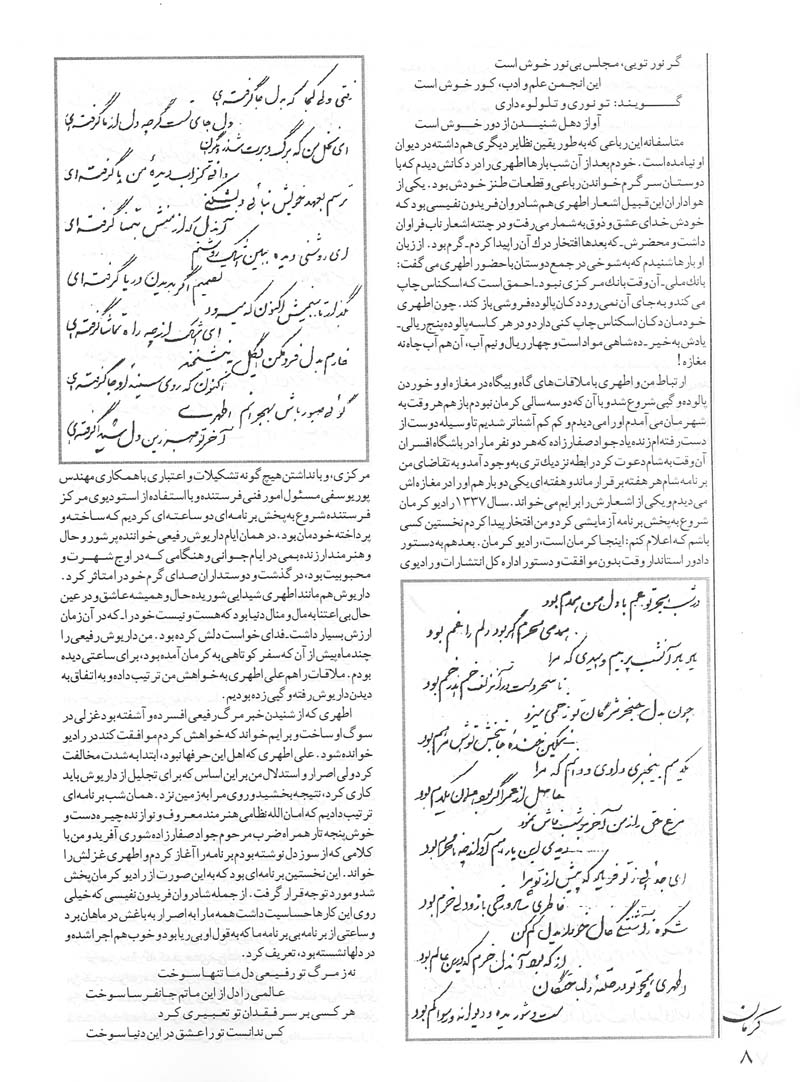 گر نور تویی، مجلس بی‌نور خوش است
این انجمن علم و ادب، کور خوش است
گـــویـنـد: تو نوری و تـلـولـوء داری
آواز دهل شنیدن از دور خوش است
متاسفانه این رباعی که به طور یقین نظایر دیگری هم داشته در دیوان
او نیامده است. خودم بعد از آن شب بارها اطهری را در دکانش دیدم که با
دوستان سرگرم خواندن رباعی و قطعات طنز خودش بود. یکی از
هواداران این قبیل اشعار اطهری هم شادروان فریدون نفیسی بود که
خودش خدای عشق و ذوق به شمار می‌رفت و در چنته اشعار ناب فراوان
داشت و محضرش -که بعدها افتخار درك آن را پیدا کردم- گرم بود. از زبان
او بارها شنیدم که به شوخی در جمع دوستان با حضور اطهری می‌گفت:
بانك ملی- آن وقت بانك مرکزی نبود- احمق است که اسکناس چاپ
می‌کند و به جای آن نمی‌رود دکان پالوده فروشی باز کند. چون اطهری
خودمان دکان اسکناس چاپ کنی دارد و در هر کاسه پالوده پنج ریالی-
یادش به خیر- ده شاهی مواد است و چهار ریال و نیم آب، آن هم آب چاه نه
مغازه!
ارتباط من و اطهری با ملاقات‌های گاه و بیگاه در مغازه او و خوردن
پالوده و گپی شروع شد و با آن که دو سه سالی کرمان نبودم باز هم هر وقت به
شهرمان می‌آمدم او را می‌دیدم و کم کم آشناتر شدیم تا وسیله دوست از
دست رفته‌ام زنده یاد جواد صفارزاده که هر دو نفر ما را در باشگاه افسران
آن وقت به شام دعوت کرد رابطه نزدیك‌تری به وجود آمد و به تقاضای من
برنامه شام هر هفته برقرار ماند و هفته‌ای یکی دو بار هم او را در مغازه‌اش
می‌دیدم و یکی از اشعارش را برایم می‌خواند. سال ۱۳۳۷ رادیو کرمان
شروع به پخش برنامه آزمایشی کرد و من افتخار پیدا کردم نخستین کسی
باشم که اعلام کنم: اینجا کرمان است، رادیو کرمان. بعد هم به دستور
دادور استاندار وقت بدون موافقت و دستور اداره کل انتشارات و رادیوی
در شب هجر تو غم با دل من همدم بود
چون بدل خنجر مژگان تو زخمی میزد
مرغ حق راز من آخر به شب فاش نمود
رفتی ولی کجا که به دل جا گرفته‌ای
دل جای تست گرچه دل از ما گرفته‌ای
ای نخل من که برگ و برت شد ز دیگران
دانی کز آب دیدهٔ من پا گرفته‌ای
ای روشنی دیده ببین اشک روشنم
تصمیم اگر بدیدن دریا گرفته‌ای
بگذار تا ببینمش اکنون که میرود
ای اشک از چه راه تماشا گرفته‌ای
خارم بدل فرو مکن ای گل به نیشخند
اکنون که روی سینهٔ او جا گرفته‌ای
گوئی صبور باش بهجرانم اطهری
آخر تو صبر زین دل شیدا گرفته‌ای
مرکزی، و با نداشتن هیچ گونه تشکیلات و اعتباری با همکاری مهندس
پوریوسفی مسئول امور فنی فرستنده و با استفاده از استودیوی مرکز
فرستنده شروع به پخش برنامه‌ای دو ساعته‌ای کردیم که ساخته و
پرداخته خودمان بود. در همان ایام داریوش رفیعی خواننده پر شور و حال
و هنرمند ارزنده بمی در ایام جوانی و هنگامی که در اوج شهـرت و
محبوبیت بود، در گذشت و دوستداران صدای گرم خود را متاثر کرد.
داریوش هم مانند اطهری شیدایی شوریده حال و همیشه عاشق و در عین
حال بی‌اعتنا به مال و منال دنیا بود که هست و نیست خود را- که در آن زمان
ارزش بسیار داشت- فدای خواست دلش کرده بود. من داریوش رفیعی را
چند ماه پیش از آن که سفر کوتاهی به کرمان آمده بود، برای ساعتی دیده
بودم. ملاقات را هم علی اطهری به خواهش من ترتیب داد و به اتفاق به
دیدن داریوش رفته و گپی زده بودیم.
اطهری که از شنیدن خبر مرگ رفیعی افسرده و آشفته بود غزلی در
سوگ او ساخت و برایم خواند که خواهش کردم موافقت کند در رادیو
خوانده شود. علی اطهری که اهل این حرفها نبود، ابتدا به شدت مخالفت
کرد ولی اصرار و استدلال من بر این اساس که برای تجلیل از داریوش باید
کاری کرد، نتیجه بخشید و روی مرا به زمین نزد. همان شب برنامه‌ای
ترتیب دادیم که امان‌الله نظامی هنرمند معروف و نوازنده چیره دست و
خوش پنجه تار همراه ضرب مرحوم جواد صفارزاده شوری آفرید و من با
کلامی که از سوز دل نوشته بودم برنامه را آغاز کردم و اطهری غزلش را
خواند. این نخستین برنامه‌ای بود که به این صورت از رادیو کرمان پخش
شد و مورد توجه قرار گرفت. از جمله شادروان فریدون نفیسی که خیلی
روی این کارها حساسیت داشت همه ما را به اصرار به باغش در ماهان برد
و ساعتی از برنامه بی‌برنامه ما که به قول او بی‌ریا بود و خوب هم اجرا شده و
در دلها نشسته بود، تعریف کرد.
نه ز مرگ تو رفیعی دل ما تنها سوخت
عالمی را دل از این ماتم جانفرسا سوخت
هر کسی بر سر فقدان تو تعبیری کرد
کس ندانست تو را عشق در این دنیا سوخت
کرمان
۸